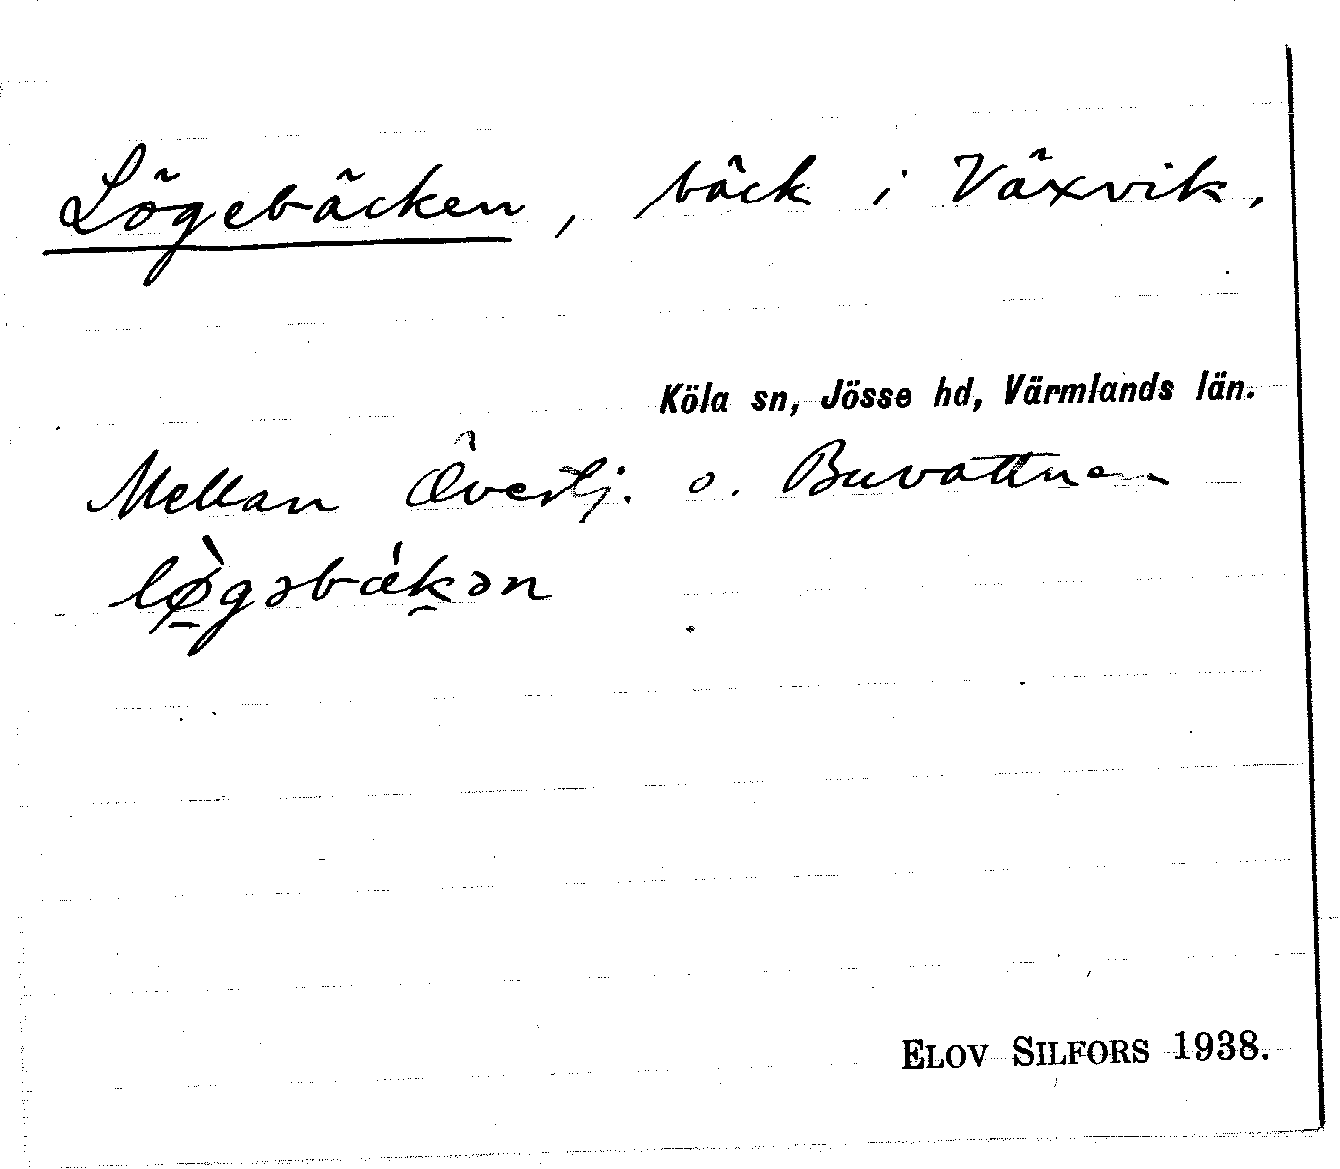 Lögebäcken, bäck i Växvik.
Köla sn, Jösse hd, Värmlands län.
Mellan Övertj. o. Buvattnen
lø̱̀gəbǽk̲ən
ELOV SILFORS 1938.